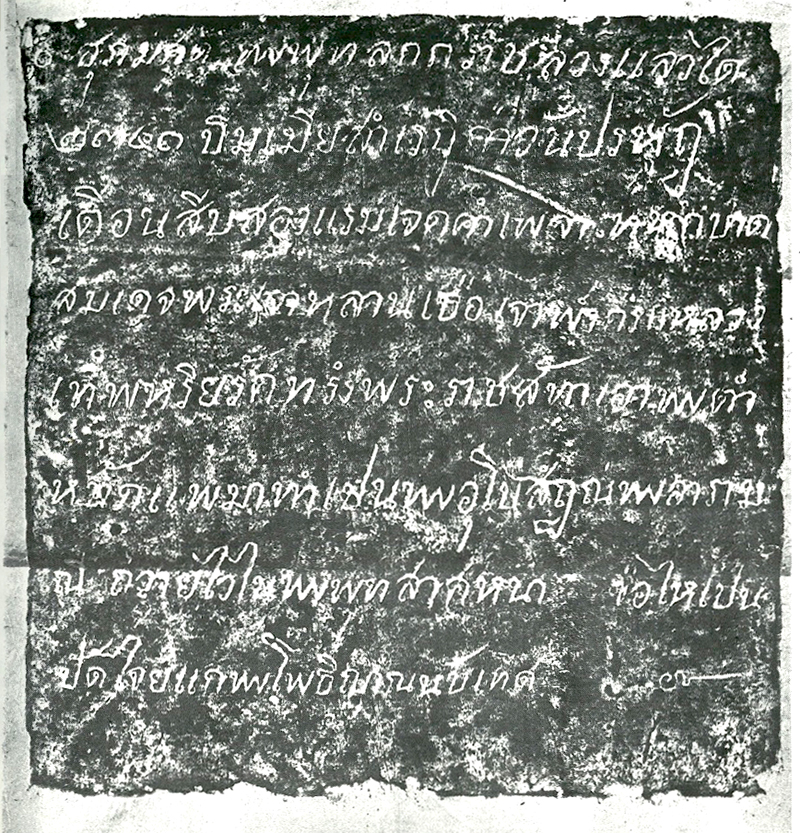 สุภม พพุทสกกราชลวงแลวใด
๒๓๔๑ ปีมเมียสำเรฎิ วันปรหัฎ
เดือนสีบสองแรมเจดคำเพลา บาด
สมเดจพระเจาหลานเธอเจาฟากรมหลวง
เทพหริยรักทรงพระราชสัทาเอาพตำ
หนักแพมาทำเปนพอุโบสัฎณพลาราม
ถวายไวไนพพุทสาสหนา ขอไหเปน
ปัดใจยแกพโพธิญาณ